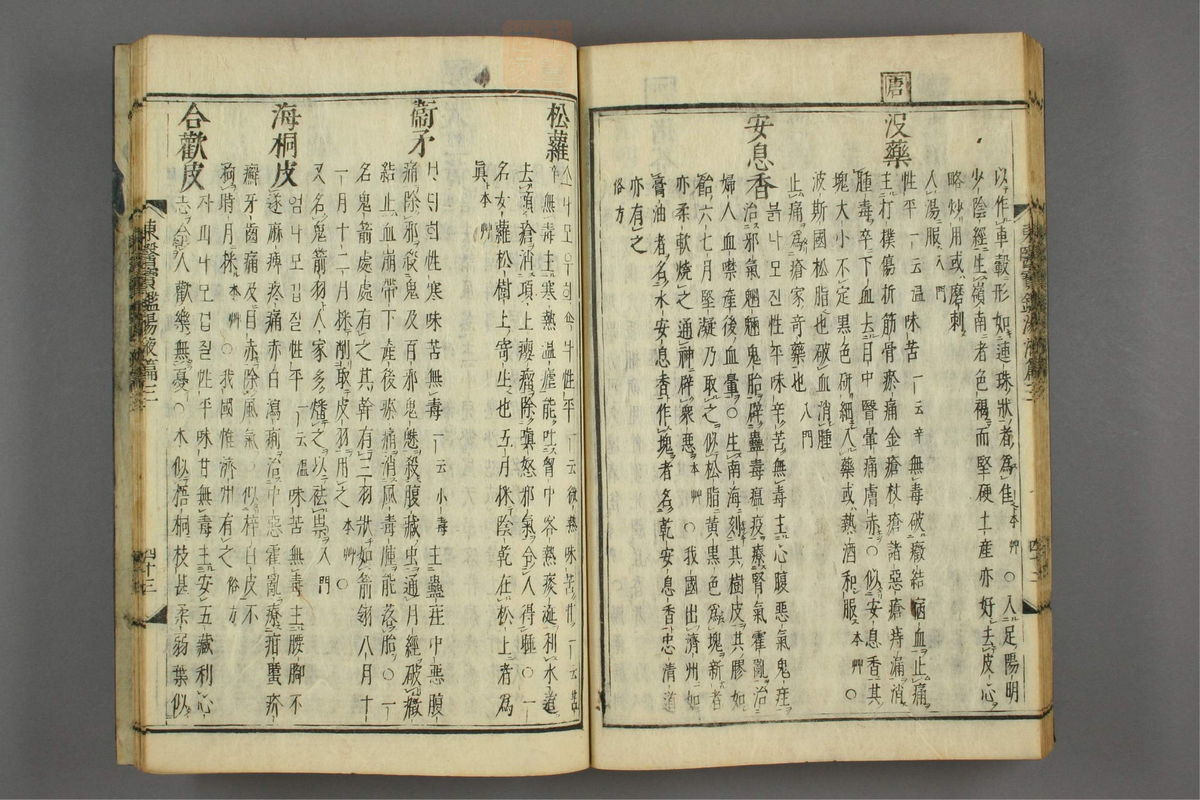 以作車轂形如連珠狀者爲佳本艸○入足陽明
少陰經生嶺南者色褐而堅硬土産亦好去皮心
略炒用或磨刺
人湯服入門
唐
沒藥
性平一云温味苦一云辛無毒破癥結宿血止痛
主打撲傷折筋骨瘀痛金瘡杖瘡諸惡瘡痔漏消
腫毒卒下血去目中瞖暈痛膚赤○似安息香其
塊大小不定黒色硏細入藥或熱酒和服本艸○
波斯國松脂也破血消腫
止痛爲瘡家奇藥也入門
安息香
븕나모진性平味辛苦無毒主心腹惡氣鬼疰
治邪氣魍魎鬼胎辟蠱毒瘟疫療腎氣霍亂治
婦人血噤產後血暈○生南海刻其樹皮其膠如
飴六七月堅凝乃取之似松脂黃黒色爲塊新者
亦柔軟燒之通神辟衆惡本艸○我國出濟州如
膏油者名水安息香作塊者名乾安息香忠清道
亦有之
俗方
東醫寶鑑湯液篇三
松蘿
소나모우희
性平一云 味苦 一云
無毒主寒熱温瘧能吐胷中客熱痰涎利水道
去頭瘡消項上瘿瘤除嗔怒邪氣令人得睡○一
名女蘿松樹上寄生也五月採陰乾在松上者爲
眞本艸
衞矛
性寒味苦無毒一云小毒主蠱疰中惡腹
痛除邪殺鬼及百邪鬼魅殺腹藏虫通月經破癥
結止血崩帶下產後瘀痛消風毒腫能落胎○一
名鬼箭處處有之其幹有三羽狀如箭翎八月十
一月十二月採削取皮羽用之本艸○
又名鬼箭羽人家多燔之以祛祟入門
海桐皮
엄나모겁질性平一云温味苦無毒主腰脚不
遂麻痺疼痛赤白瀉痢治中惡霍亂療疳䘌疥
癬牙齒痛及目赤除風氣○似梓白皮不
拘時月採本艸○我國惟濟州有之俗方
合歡皮
자괴나모겁질性平味甘無毒主安五藏利心
志令人歡樂無憂○木似梧桐枝甚柔弱葉似
東醫寶鑑湯液篇三
四十三